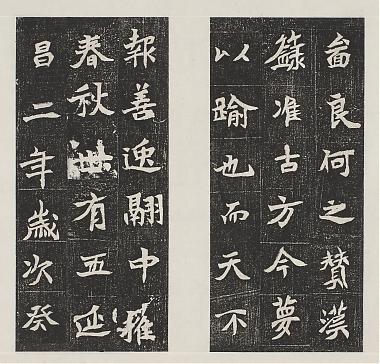 良何之贊漢
籙准古方今夢
以踰也而天不
報善逸翮中摧
春秋卌有五延
昌二年歲次癸